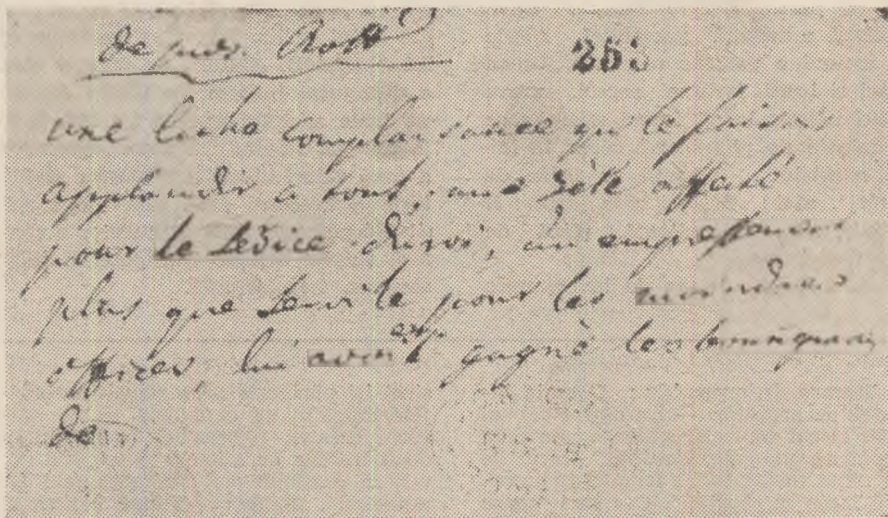 de
253
une lache complaisance qui le faisoit
applaudir a tout, une zèle affecté
pour le Service du roi, un empressement
plus que servile pour les moindres
offices, lui avoient gagné les bonnes graces
de